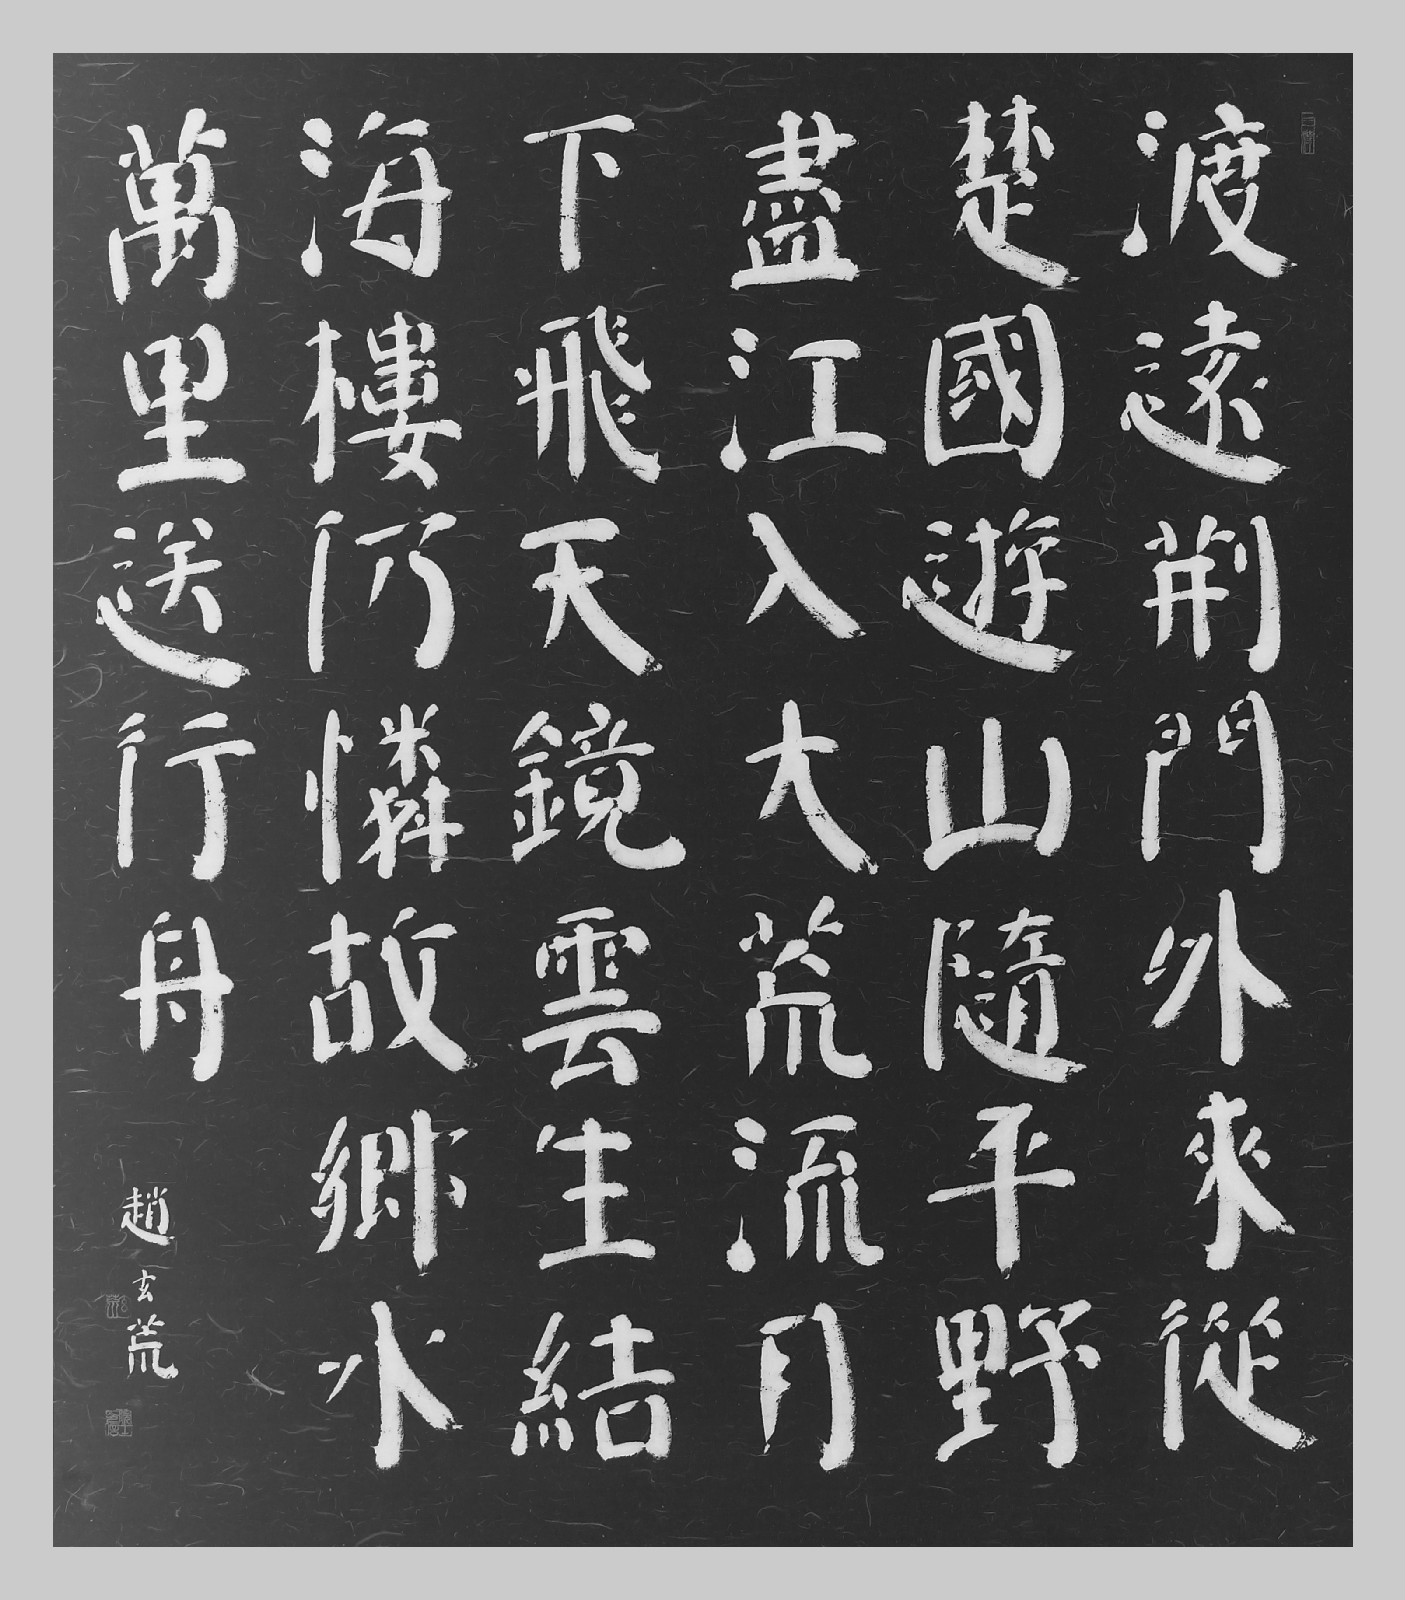 渡遠荆門外來從
楚國遊山隨平野
盡江入大荒流月
下飛天鏡雲生結
海樓仍憐故鄉水
萬里送行舟
趙玄荒